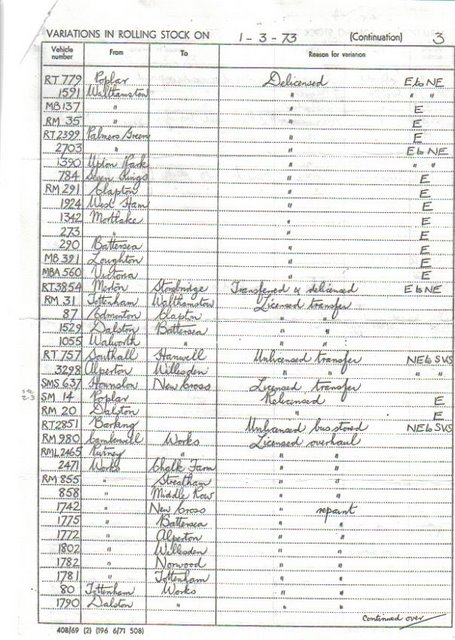 VARIATIONS IN ROLLING STOCK ON 1-3-73 (Continuation) 3
Vehicle number From To Reason for variance
RT 779 Poplar Delicensed E to NE
1591 Walthamstow " " "
MB 137 " " E
RM 35 " " E
RT 2399 Palmers Green " E
2703 " " E to NE
1390 Upton Park " " "
784 Seven Kings " E
RM 291 Clapton " E
1924 West Ham " E
1342 Mortlake " E
273 " " E
290 Battersea " E
MB 391 Loughton " E
MBA 560 Victoria " E
RT 3854 Merton Stonebridge Transferred & delicensed E to NE
RM 31 Tottenham Walthamstow Licensed transfer
87 Edmonton Clapton " "
1529 Dalston Battersea " "
1055 Walworth " " "
RT 757 Southall Hanwell Unlicensed transfer NE to SVS
3298 Alperton Willesden " " " "
SMS 637 Hounslow New Cross Licensed transfer
SM 14 Poplar Relicensed E
RM 20 Dalston " E
RT 2851 Barking Unlicensed bus stored NE to SVS
RM 980 Camberwell Works Licensed overhaul
RML 2465 Putney " " "
2471 Works Chalk Farm " "
RM 855 " Streatham " "
858 " Middle Row " "
1742 " New Cross " repaint
1775 " Battersea " "
1772 " Alperton " "
1802 " Willesden " "
1782 " Norwood " "
1781 " Tottenham " "
80 Tottenham Works " "
1790 Dalston " " "
Continued over
408/69 (2) (196 6/71 508)